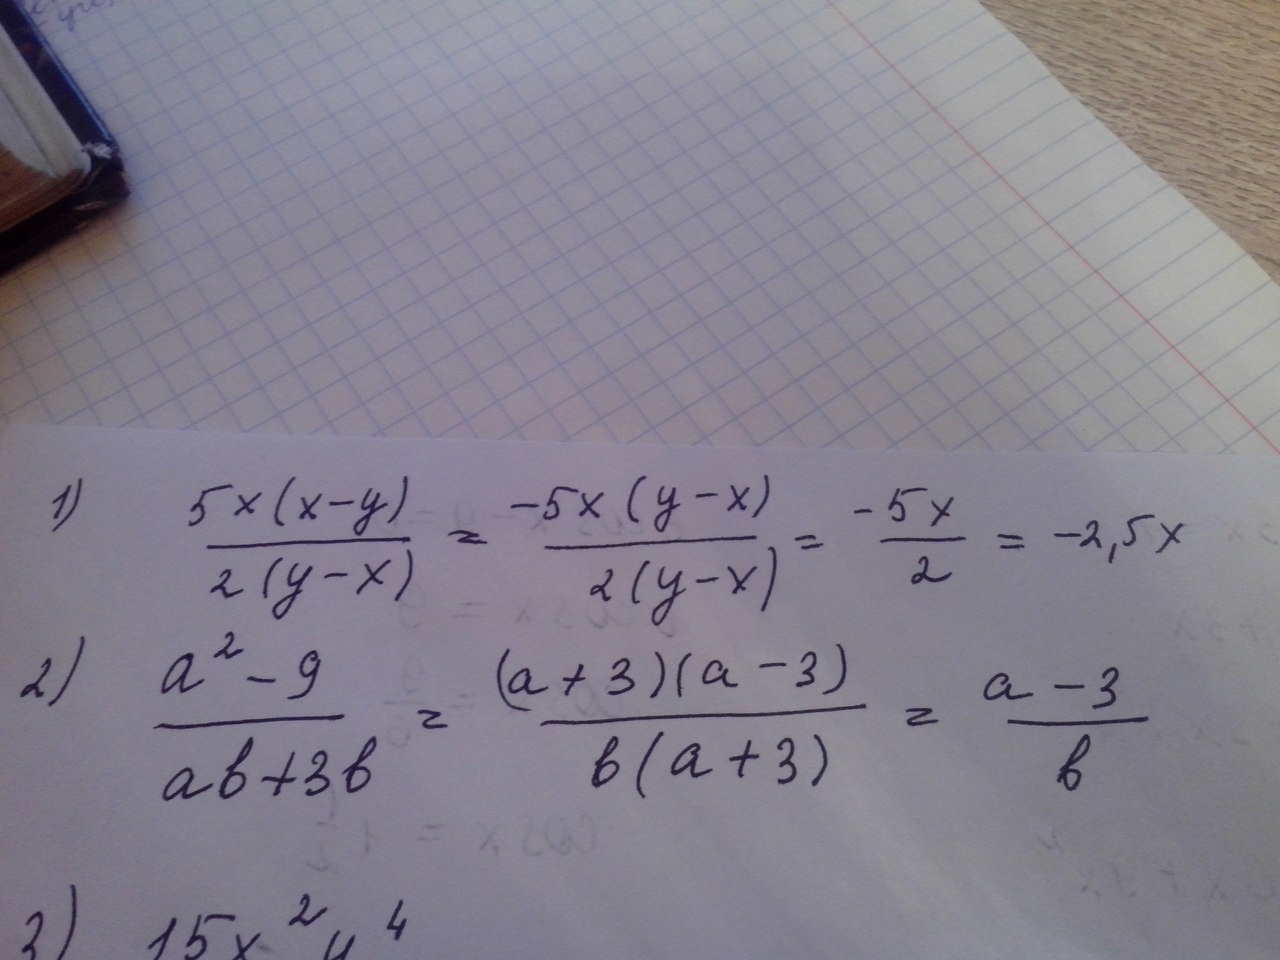 1) 5x(x-y)/2(y-x) = -5x(y-x)/2(y-x) = -5x/2 = -2,5x
2) a²-9/ab+3b = (a+3)(a-3)/b(a+3) = a-3/b
3) 15x²y⁴